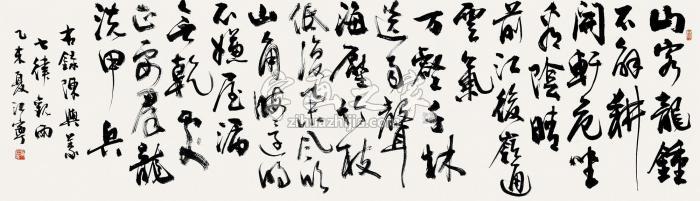 山客龍鍾
不解耕
開軒危坐
看陰晴
前江後嶺通
雲氣
万壑千林
送雨聲
海壓竹枝
低復舉風吹
山角晦還明
不嫌屋漏
無乾處
正要群龍
洗甲兵
右錄陳與義
七律觀雨
乙未夏江寧
字画之家
zihuazhijia.com